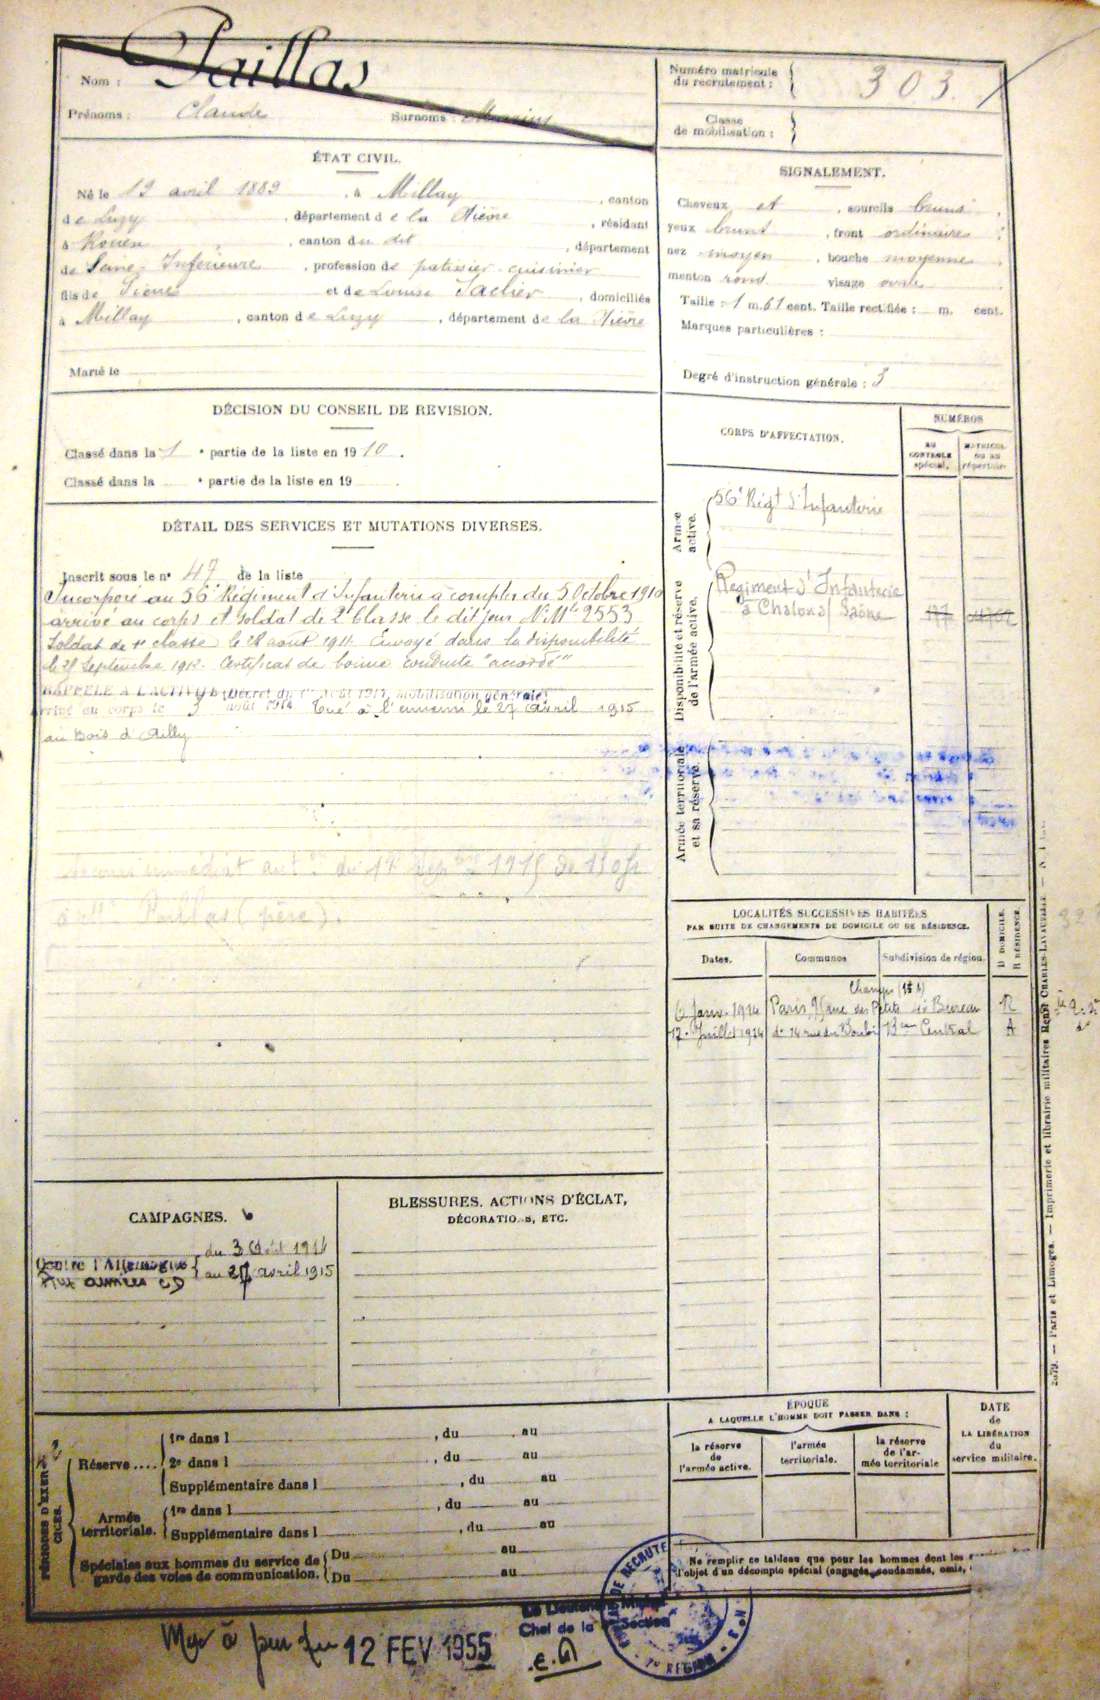 Nom : Paillas
Prénoms : Claude Surnoms :
Numéro matricule du recrutement : 303
Classe de mobilisation :
ÉTAT CIVIL.
Né le 19 avril 1889, à Millay, canton
de Luzy, département de la Nièvre, résidant
à Rouen, canton du dit, département
de Seine-Inférieure, profession de patissier-cuisinier
fils de Pierre et de Louise Saclier, domiciliés
à Millay, canton de Luzy, département de la Nièvre
Marié le
SIGNALEMENT.
Cheveux et, sourcils bruns,
yeux bruns, front ordinaire;
nez moyen, bouche moyenne
menton rond visage ovale
Taille : 1 m. 61 cent. Taille rectifiée : m. cent.
Marques particulières :
Degré d'instruction générale : 3
DÉCISION DU CONSEIL DE REVISION.
Classé dans la 1e partie de la liste en 1910.
Classé dans la e partie de la liste en 19 .
CORPS D'AFFECTATION.
NUMÉROS
AU CONTROLE spécial.
MATRICUL. OU AU répertoire
Armée active.
56e Régt d'Infanterie
Disponibilité et réserve de l'armée active.
Régiment d'Infanterie
à Chalon s/ Saône
Armée territoriale et sa réserve.
DÉTAIL DES SERVICES ET MUTATIONS DIVERSES.
Inscrit sous le n° 47 de la liste
Incorporé au 56e Régiment d'Infanterie à compter du 5 Octobre 1910
arrivé au corps et soldat de 2e classe le dit jour N° Mle 2553
Soldat de 1e classe le 28 août 1911. Envoyé dans la disponibilité
le 25 Septembre 1912. Certificat de bonne conduite "accordé"
RAPPELÉ A L'ACTIVITÉ (Décret du 1er août 1914, mobilisation générale)
Arrivé au corps le 3 août 1914 Tué à l'ennemi le 27 avril 1915
au Bois d'Ailly
Secours immédiat du 17 1915 de 150f
à Mr Paillas (père).
LOCALITÉS SUCCESSIVES HABITÉES
PAR SUITE DE CHANGEMENTS DE DOMICILE OU DE RÉSIDENCE.
Dates. Communes Subdivision de région. D DOMICILE. R RÉSIDENCE.
Champs
6 Janv. 1914 Paris, des Petits Bureau R
12 Juillet 1914 do 14 rue du Bouloi Central
CAMPAGNES.
Contre l'Allemagne du 3 Août 1914
Aux armées CD au 27 avril 1915
BLESSURES, ACTIONS D'ÉCLAT,
DÉCORATIONS, ETC.
PÉRIODES D'EXERCICES.
Réserve .... 1re dans l , du au
2e dans l , du au
Supplémentaire dans l , du au
Armée territoriale. 1re dans l , du au
Supplémentaire dans l , du au
Spéciales aux hommes du service de garde des voies de communication. Du au
Du au
ÉPOQUE
A LAQUELLE L'HOMME DOIT PASSER DANS :
la réserve de l'armée active.
l'armée territoriale.
la réserve de l'armée territoriale
DATE de LA LIBÉRATION du service militaire.
Ne remplir ce tableau que pour les hommes dont les
l'objet d'un décompte spécial (engagés, condamnés, omis,
2079. — Paris et Limoges. — Imprimerie et librairie militaires Henri CHARLES-LAVAUZELLE
Chef de la Section
7e RÉGION
Mis à jour du 12 FEV 1955